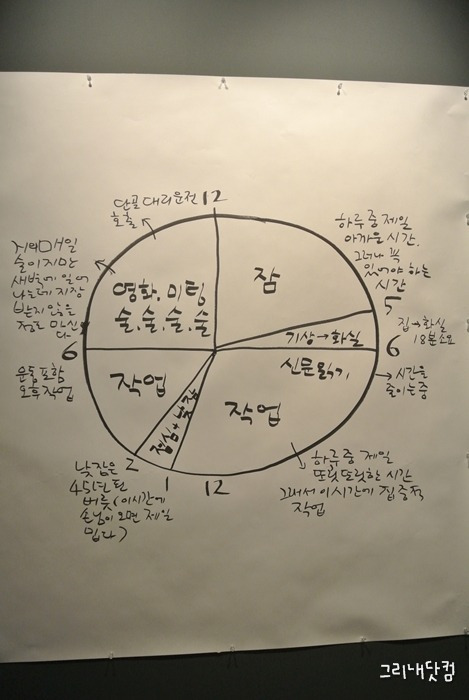 단골 대리운전
호출
12
하루 중 제일
아까운 시간.
그러나 꼭
있어야 하는
시간
거의 매일
술이지만
새벽에 일어
나는데 지장
받지 않을
정도 마신
다.
영화, 미팅
술, 술, 술, 술
잠
5
기상→화실
집→화실
18분 소요
6
6
신문읽기
→시간을
줄이는 중
운동 포함
오후 작업
작업
점심+낮잠
작업
2
1
12
낮잠은
45년 된
버릇(이 시간에
손님이 오면 제일
밉다)
하루 중 제일
또릿또릿한 시간
그래서 이 시간에 집중적
작업
그리내닷컴